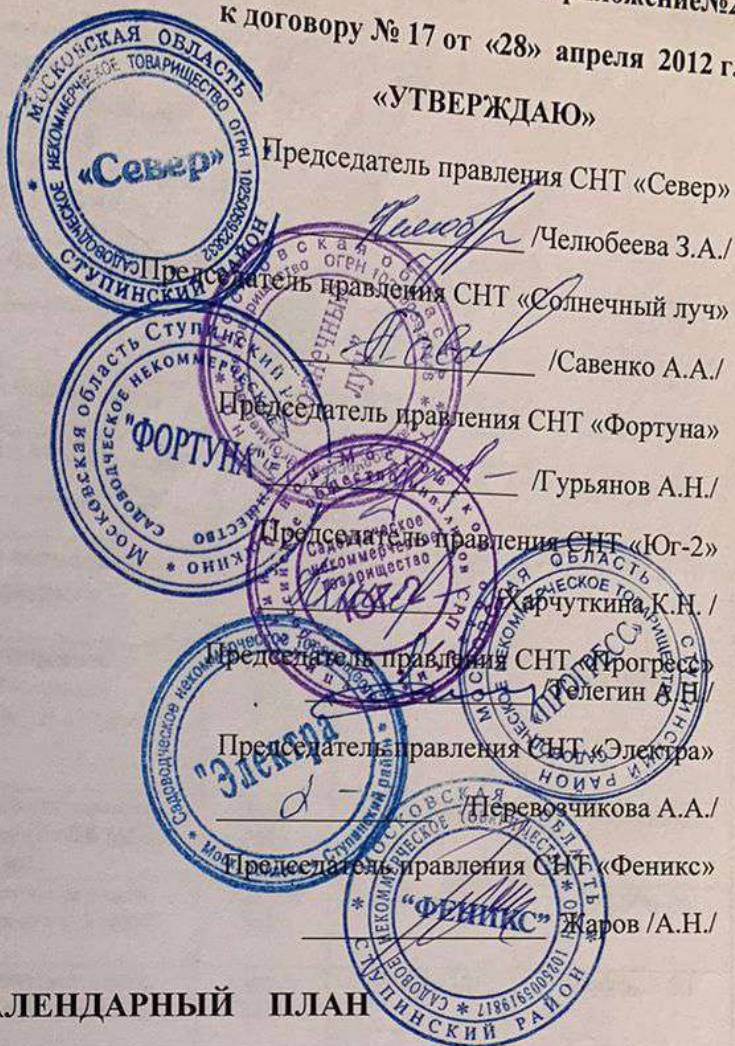 к договору № 17 от «28» апреля 2012 г.
«УТВЕРЖДАЮ»
Председатель правления СНТ «Север»
/Челюбеева З.А./
Председатель правления СНТ «Солнечный луч»
/Савенко А.А./
Председатель правления СНТ «Фортуна»
/Гурьянов А.Н./
Председатель правления СНТ «Юг-2»
/Харчуткина К.Н. /
Председатель правления СНТ «Прогресс»
/Телегин А.Н/
Председатель правления СНТ «Электра»
/Перевозчикова А.А./
Председатель правления СНТ «Феникс»
Жаров /А.Н./
АЛЕНДАРНЫЙ ПЛАН
МОСКОВСКАЯ ОБЛАСТЬ
СТУПИНСКИЙ РАЙОН
САДОВОДЧЕСКОЕ НЕКОММЕРЧЕСКОЕ ТОВАРИЩЕСТВО ОГРН
«Север»
Московская область
Солнечный
луч"
Московская область Ступинский
САДОВОДЧЕСКОЕ НЕКОММЕРЧЕСКОЕ
"ФОРТУНА"
Садоводческое
некоммерческое
товарищество
ЮГ-2
МОСКОВСКАЯ ОБЛАСТЬ СТУПИНСКИЙ РАЙОН
САДОВОДЧЕСКОЕ НЕКОММЕРЧЕСКОЕ ТОВАРИЩЕСТВО
«ПРОГРЕСС»
Садоводческое некоммерческое
Ступинский район
"Электра
МОСКОВСКАЯ ОБЛАСТЬ
СТУПИНСКИЙ РАЙОН
САДОВОЕ НЕКОММЕРЧЕСКОЕ ТОВАРИЩЕСТВО * ОГРН 1025005919817
“ФЕНИКС”